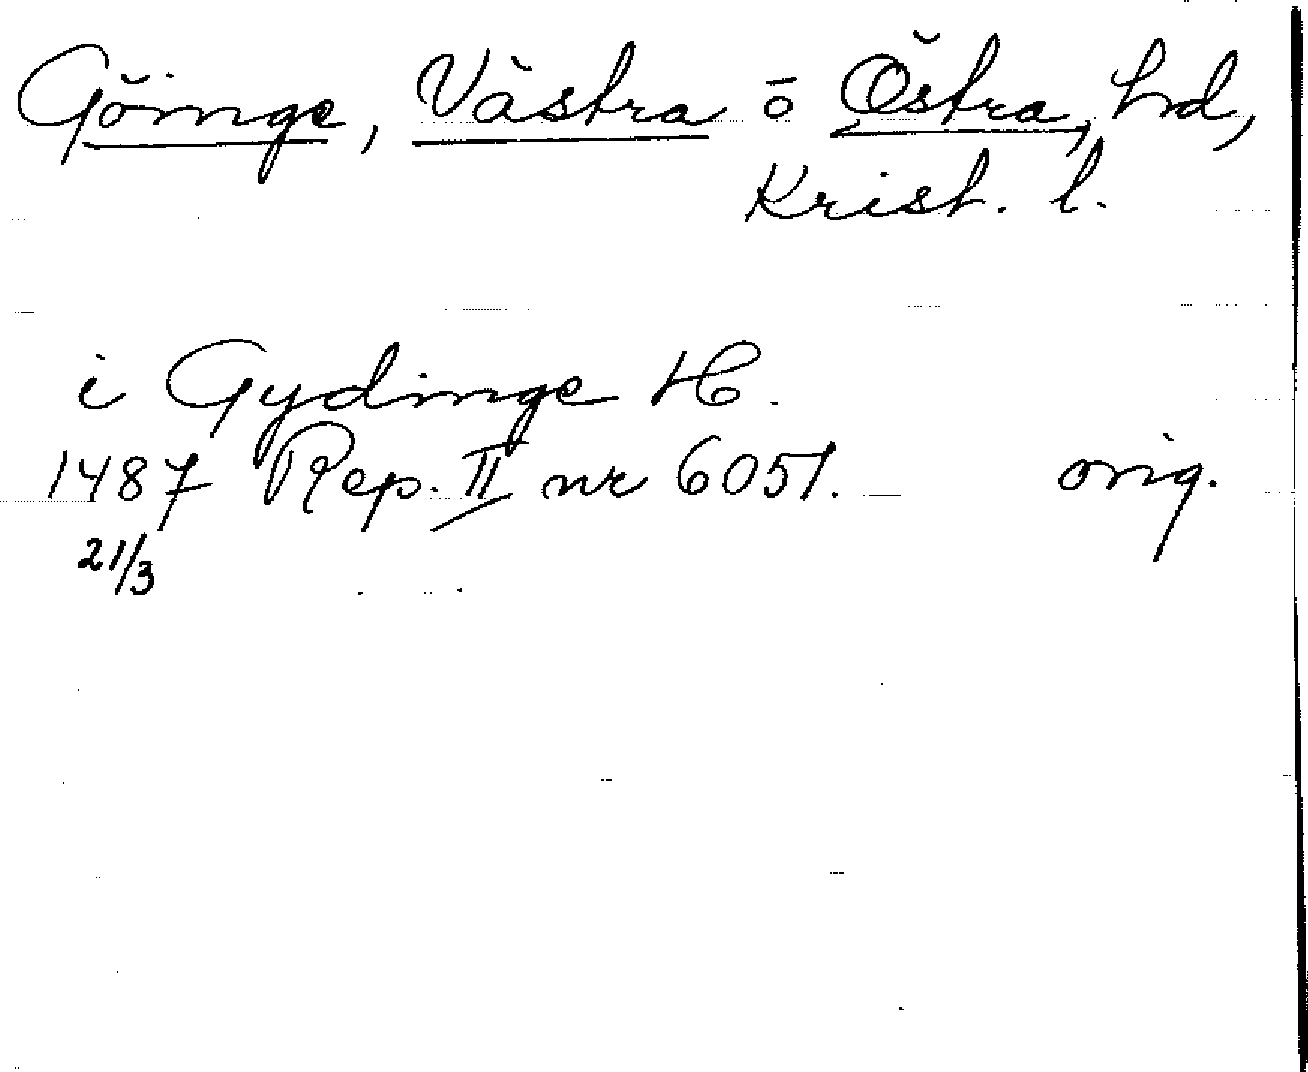 Göinge, Västra o Östra, hd,
Krist. l.
i Gydinge H.
1487 Rep. II nr 6051. orig.
21/3